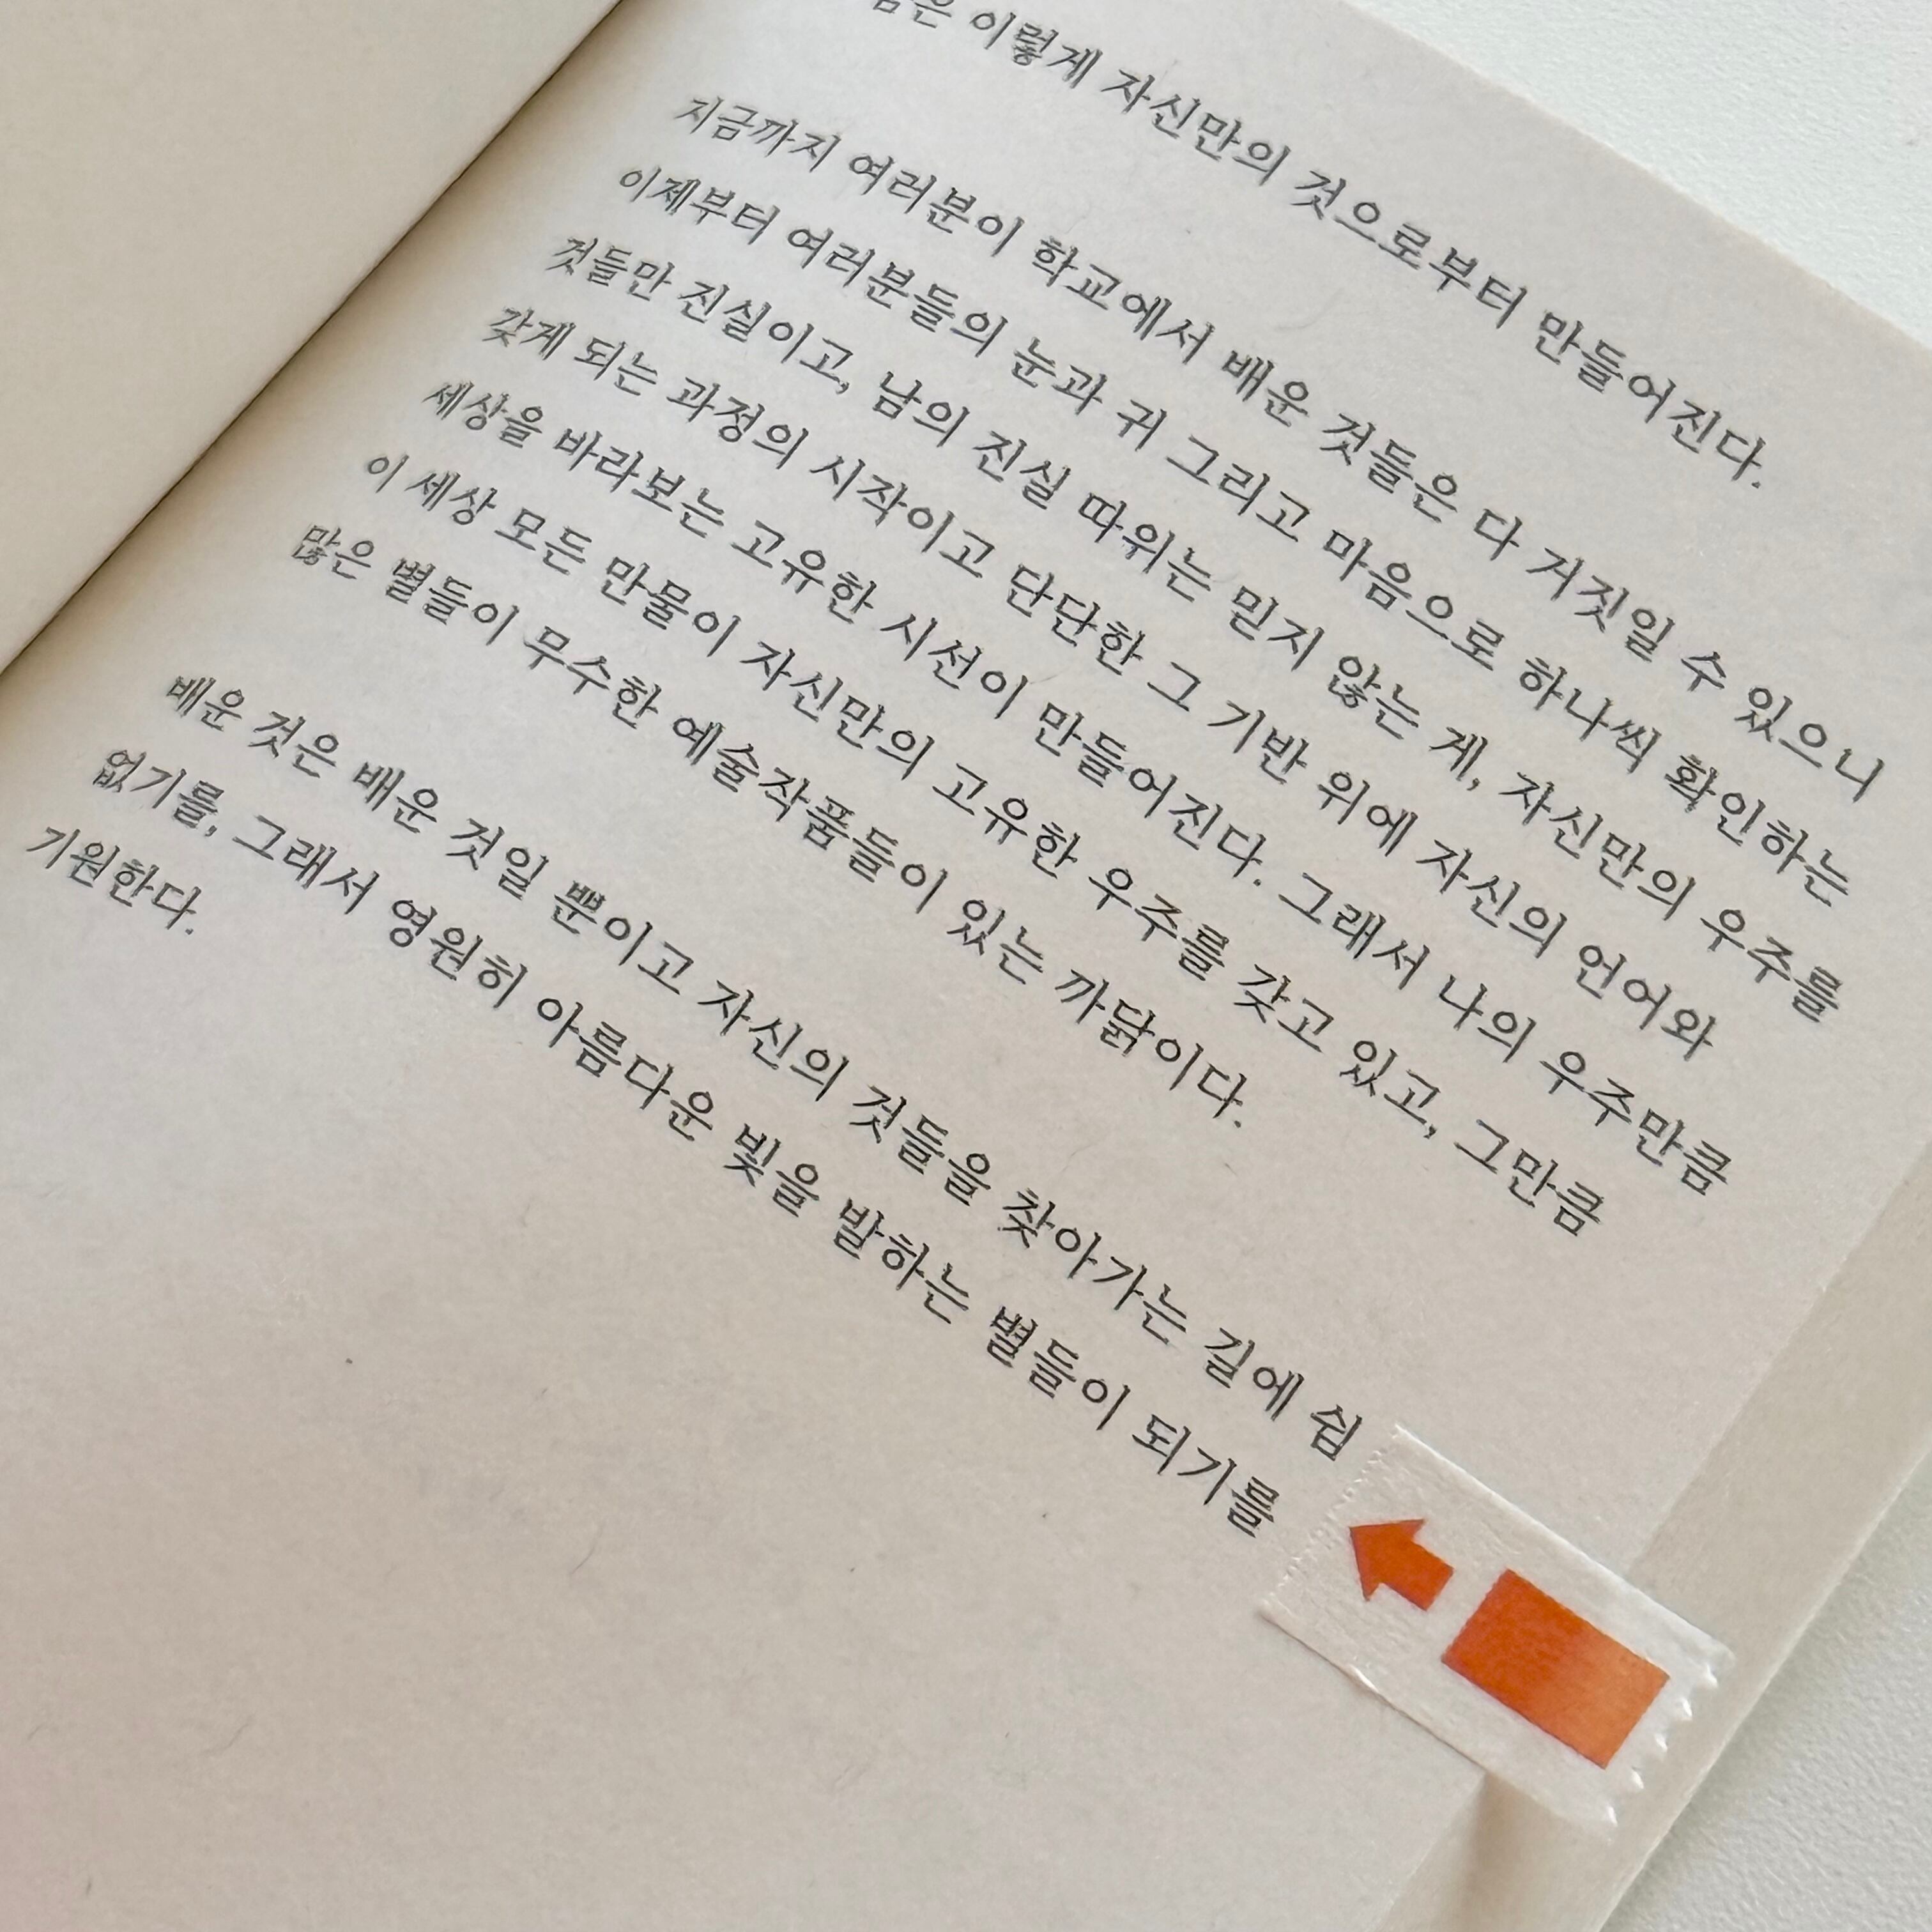 이렇게 자신만의 것으로부터 만들어진다.
지금까지 여러분이 학교에서 배운 것들은 다 거짓일 수 있으니
이제부터 여러분들의 눈과 귀 그리고 마음으로 하나씩 확인하는
것들만 진실이고, 남의 진실 따위는 믿지 않는 게, 자신만의 우주를
갖게 되는 과정의 시작이고 단단한 그 기반 위에 자신의 언어와
세상을 바라보는 고유한 시선이 만들어진다. 그래서 나의 우주만큼
이 세상 모든 만물이 자신만의 고유한 우주를 갖고 있고, 그만큼
많은 별들이 무수한 예술작품들이 있는 까닭이다.
배운 것은 배운 것일 뿐이고 자신의 것들을 찾아가는 길에 쉼
없기를, 그래서 영원히 아름다운 빛을 발하는 별들이 되기를
기원한다.